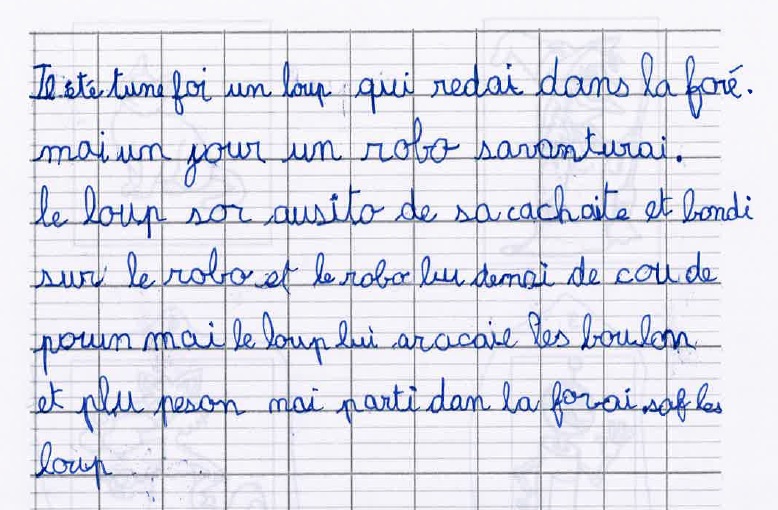 Il été tune foi un loup qui redai dans la foré.
mai un jour un robo savanturai.
le loup sor ausito de sa cachaite et bondi
sur le robo et le robo lui demai de cou de
pouin mai le loup lui aracaie les boulon
et plu peson mai parti dan la forai saf les
loup